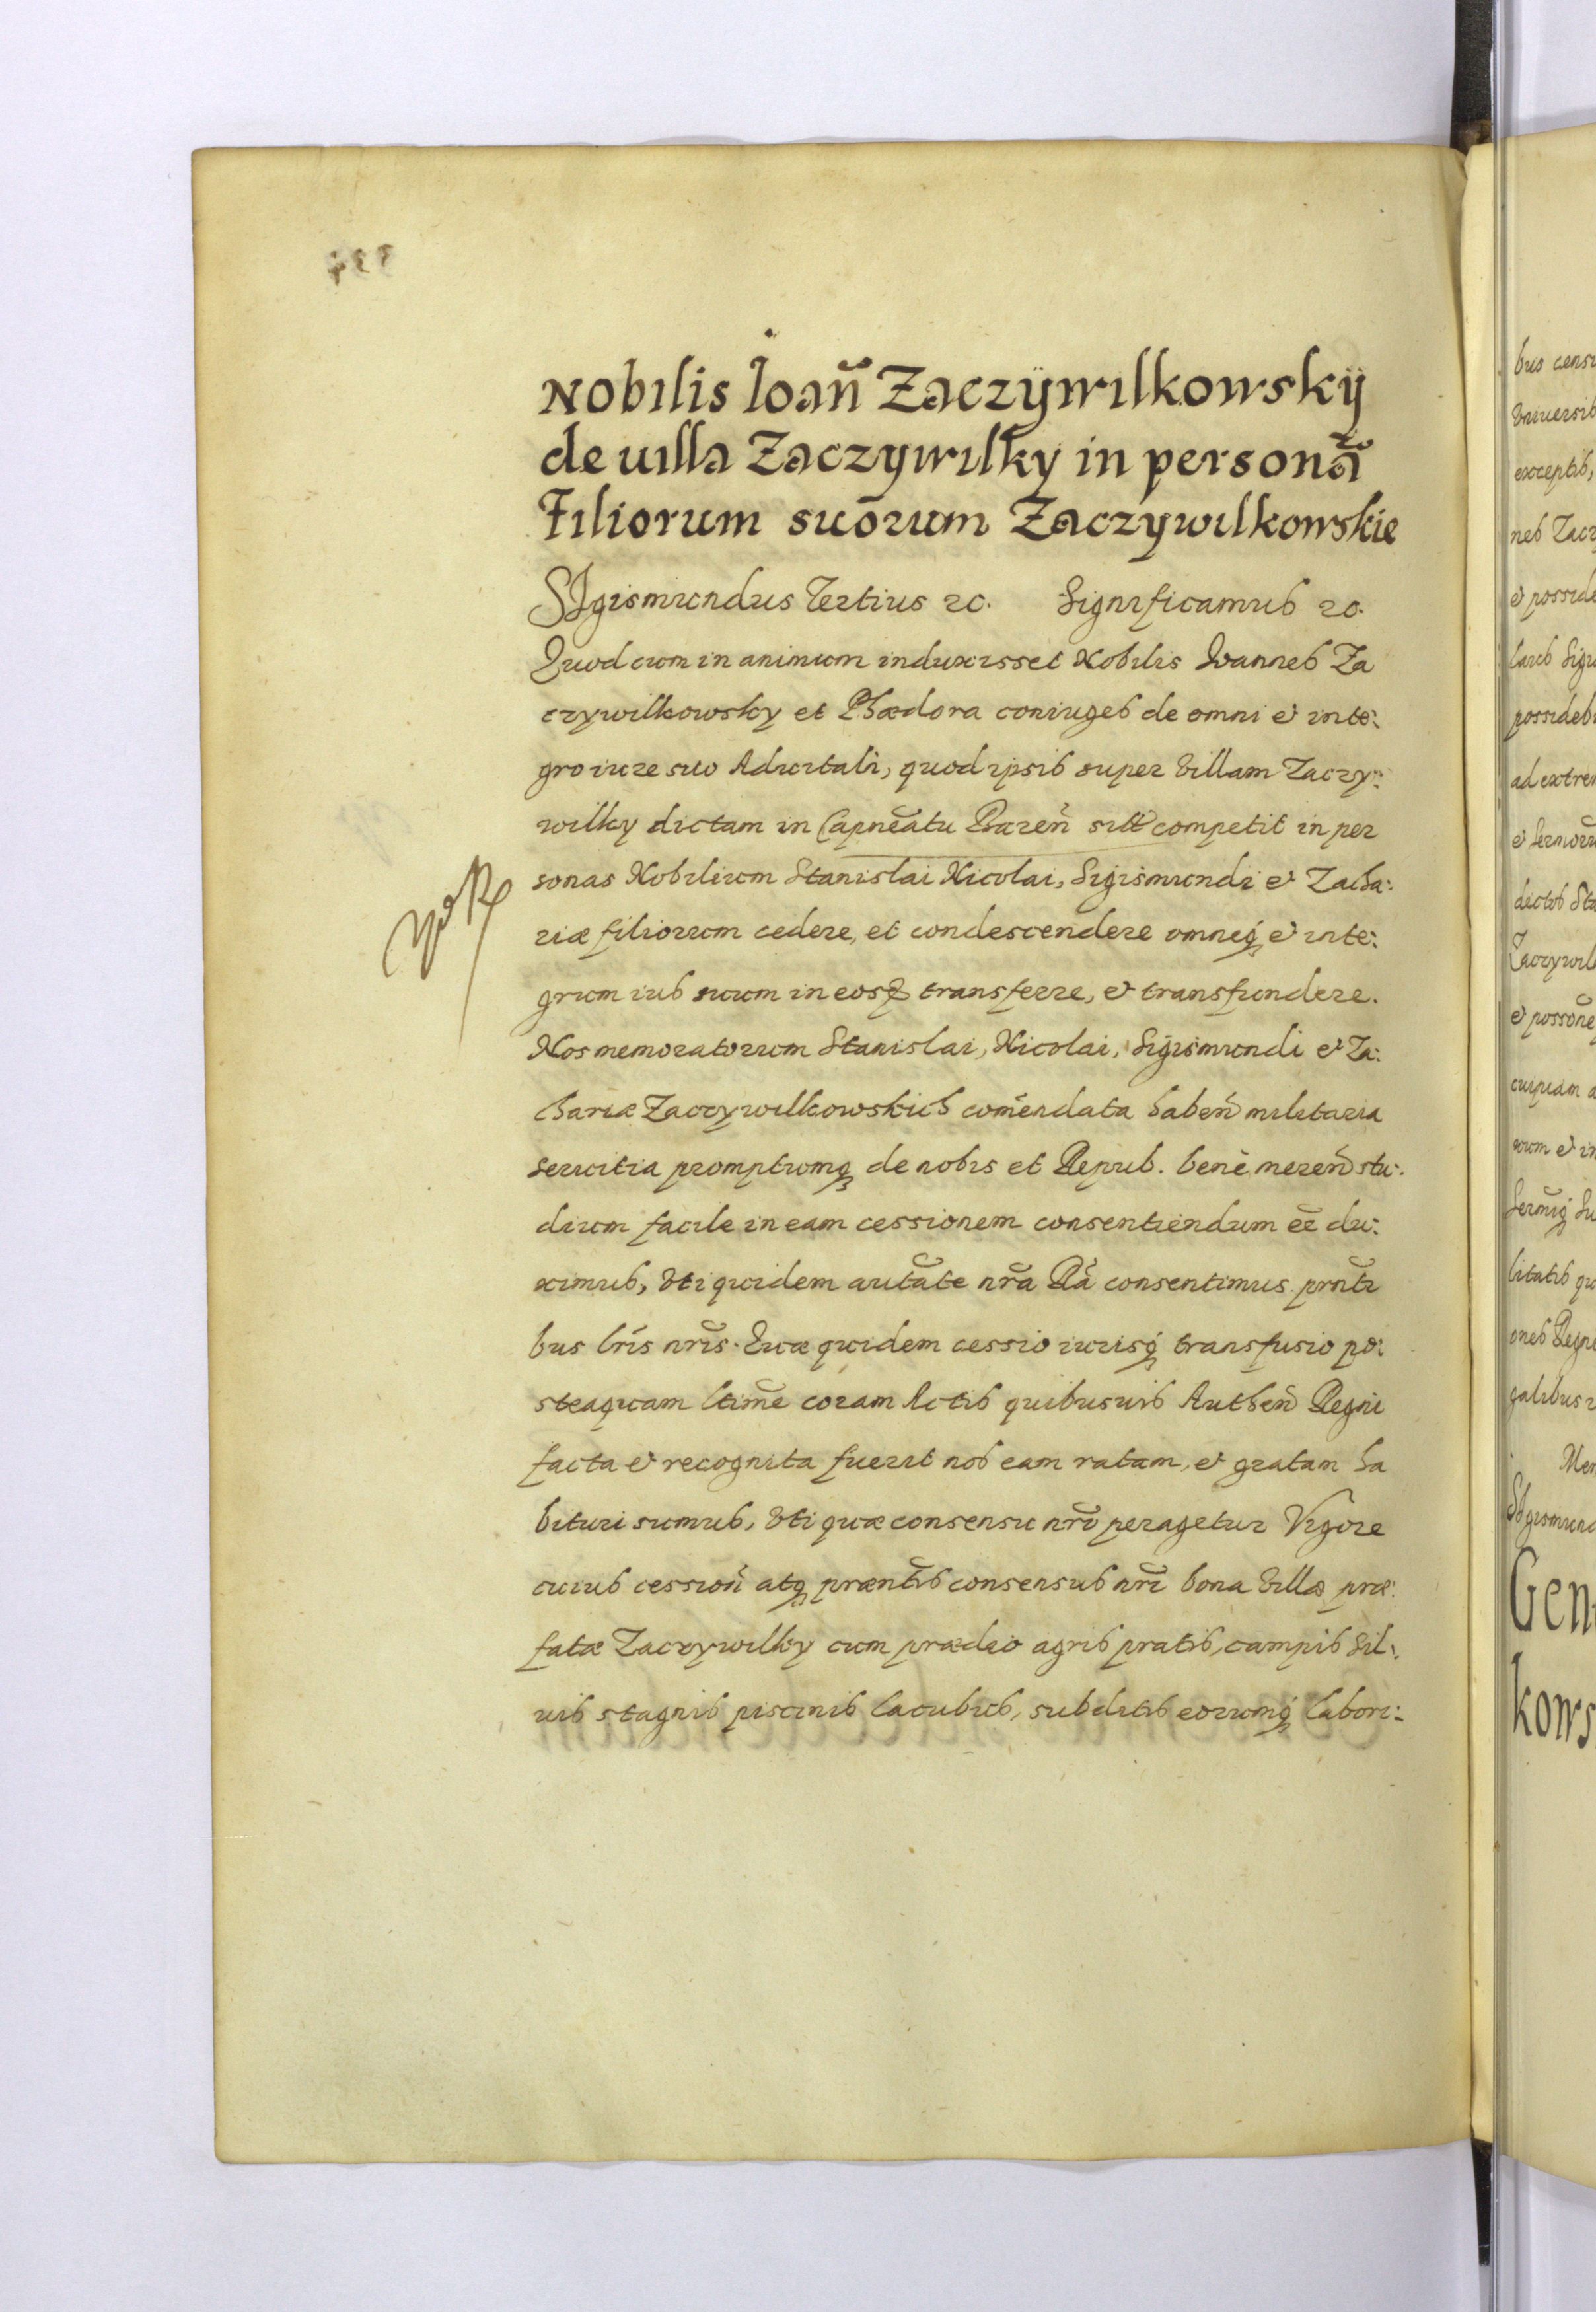 Nobilis Ioañ Zaczÿwilkowskÿ
de uilla Zaczywilky in personã
Filiorum suorum Zaczywilkowskie
SIgismundus Tertius rc. Significamus rc.
Quod cum in animum induxisset Nobilis Ioannes Za
czywilkowsky et Phædora coniuges de omni et inte:
gro iure suo Aduitali, quod ipsis super Villam Zaczy:
wilky dictam in Capneatu Bareñ sitt competit in per
sonas Nobilium Stanislai Nicolai, Sigismundi et Zacha:
riæ filiorum cedere, et condescendere omneq et inte:
grum ius suum in eosq transferre, et transfundere.
Nos memoratorum Stanislai, Nicolai, Sigismundi et Za:
chariæ Zaczywilkowskich comendata habeñ militaria
seruitia promptumq de nobis et Repub. bene mereñ stu:
dium facile in eam cessionem consentiendum eē du:
ximus, Vti quidem autate nr̃a Rã consentimus prñti
bus lris nr̃is. Quæ quidem cessio iurisq transfusio po:
steaquam ltime coram Actis quibusuis Autheñ Regni
facta et recognita fuerit nos eam ratam, et gratam ha
bituri sumus, Vti quæ consensu nr̃o peragetur Vigore
cuius cessioñ atq prænt̃is consensus nr̃i bona Villæ præ:
fatæ Zaczywilky cum prædio agris pratis, campis Sil:
uis stagnis piscinis lacubus, subditis eorumq labori:
bus censi
Vniuersis
exceptis,
nes Zacz
et posside
laus Sigi
possideb
ad extre
dictos Sta
Zaczywil
et possone
cuipiam a
litatis qu
ones Regni
galibus
Men
Sigismund
Gen
kows